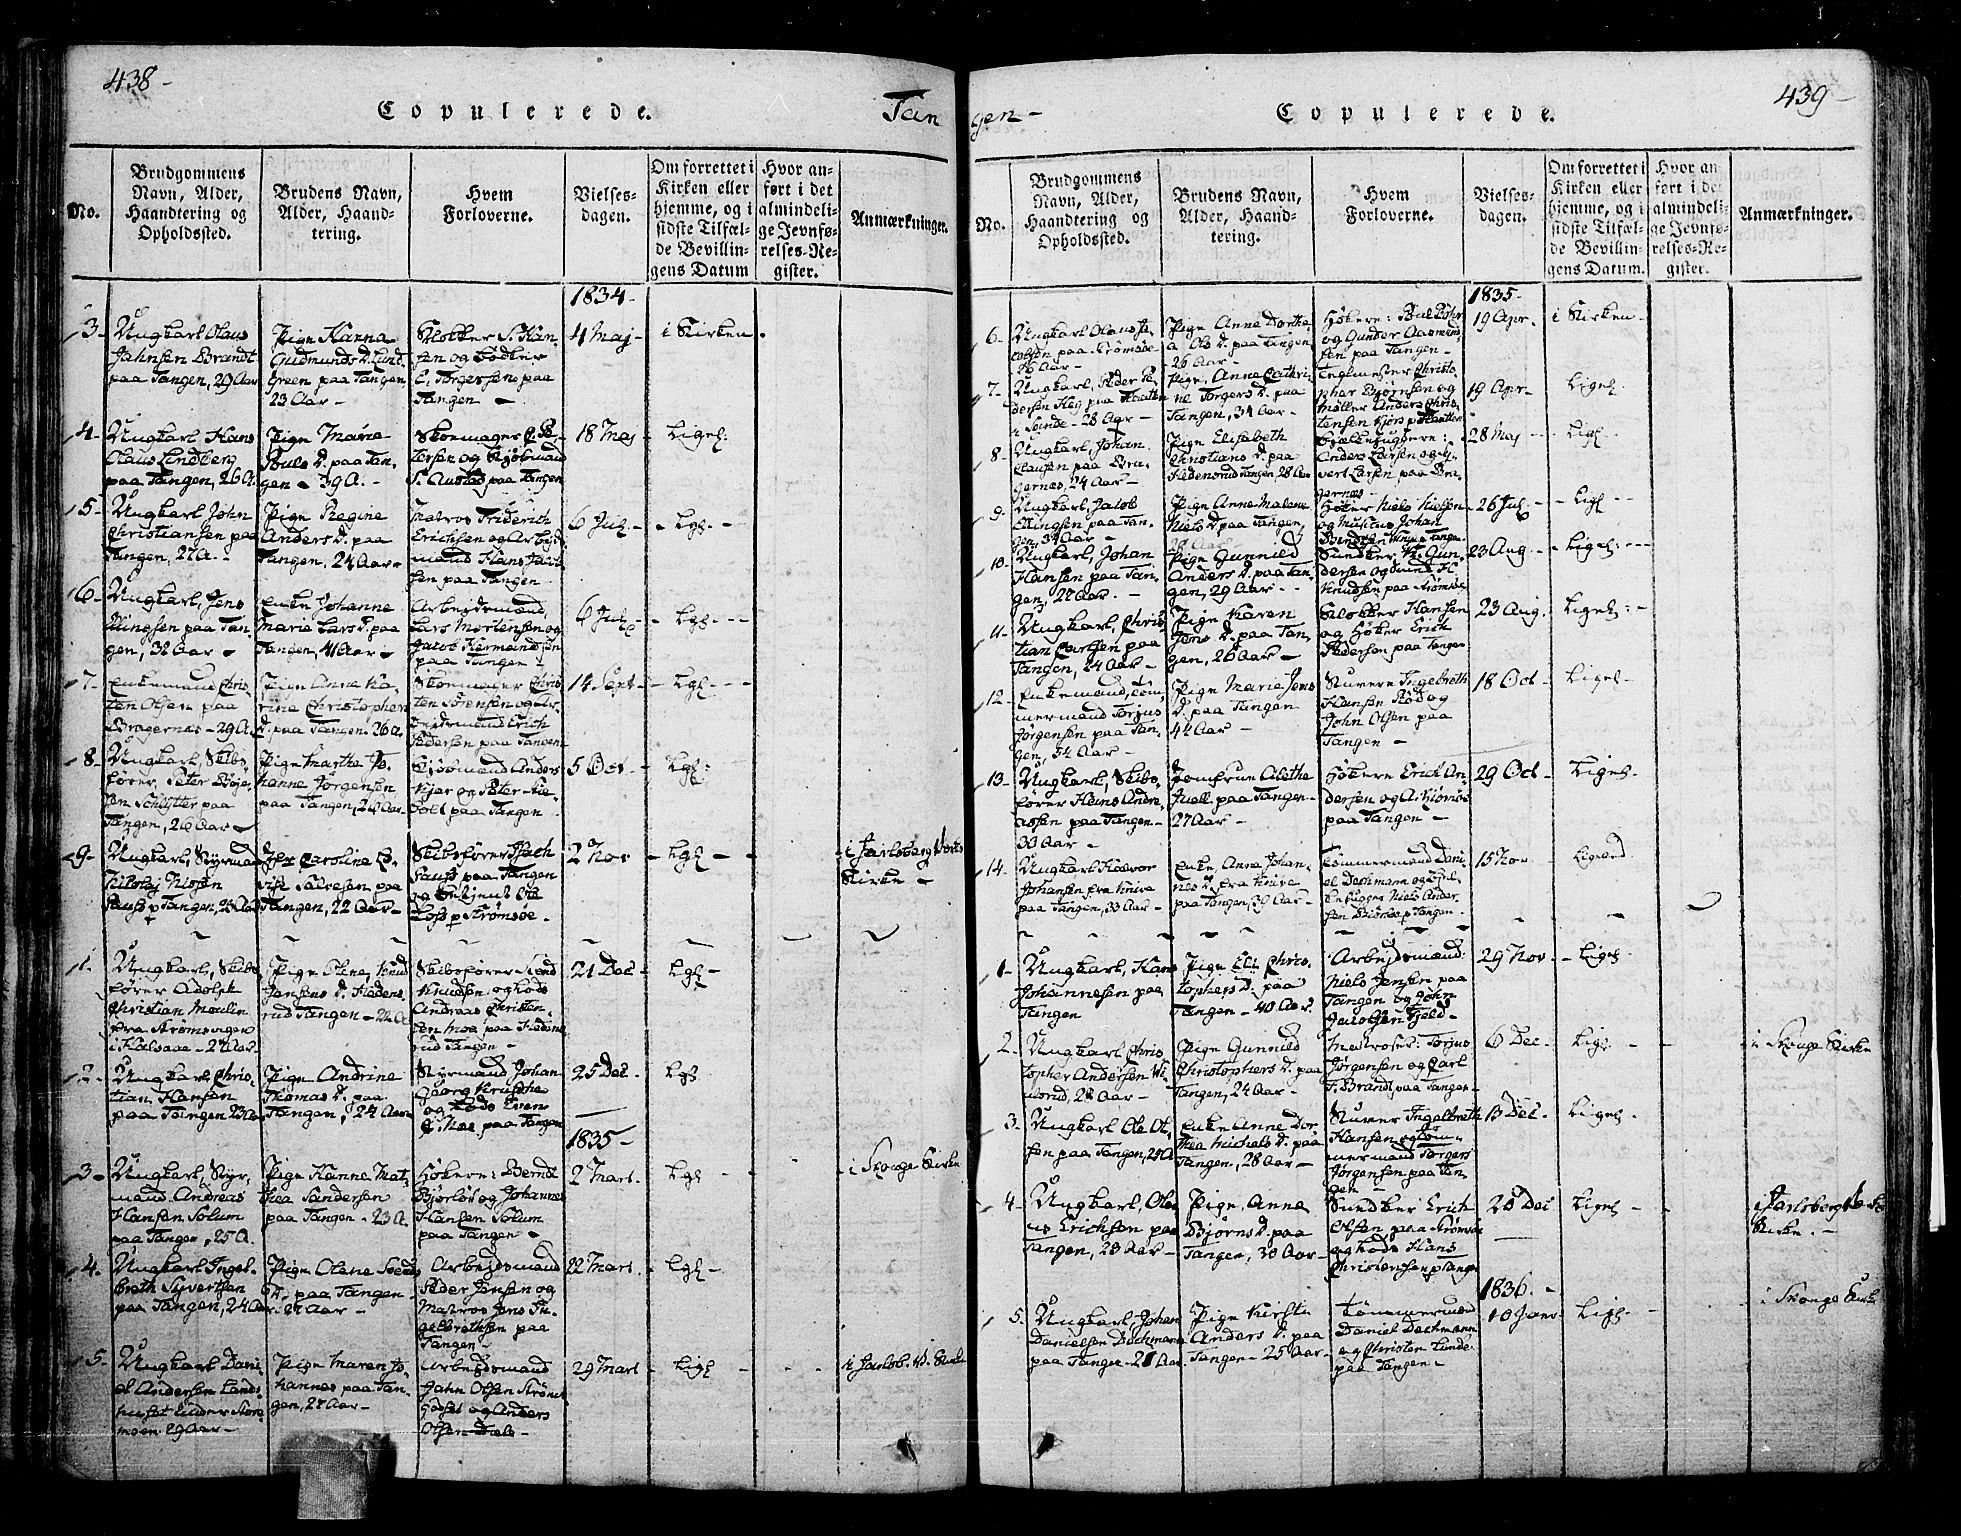 438-
Copulerede.
Tan
No.
Brudgommens Navn, Alder, Haandtering og Opholdssted.
Brudens Navn, Alder, Haandtering.
Hvem Forloverne.
Vielsesdagen.
Om forrettet i Kirken eller hjemme, og i sidste Tilfælde Bevillingens Datum
Hvor anført i det almindelige Jevnførelses-Register.
Anmærkninger.
1834-
3- Ungkarl Olaus
Jahnsen Brandt
paa Tangen, 29 Aar
Pige Hanna
Gudmunds D. Lund
Green paa Tangen
23 Aar -
paa
Tangen -
4 Maj-
i Kirken.
4- Ungkarl Hans
Olaus Lindberg
paa Tangen, 26 A.
Pige Maria
Pouls D. paa Tan-
gen - 39 A. -
Skoemager
paa Tangen
18 Maj -
Ligel:
5- Ungkarl John
Christiansen paa
Tangen, 27 A. -
Pige Regine
Anders D. paa
Tangen, 24 Aar -
Matros Friderich
Erichsen og Arbejds-
mand Hans Jacob-
sen paa Tangen
6 Jul.
- Lgl. -
6- Ungkarl, Jens
Ellingsen paa Tan-
gen, 32 Aar -
Enke Johanne
Marie Lars D. paa
Tangen, 41 Aar -
Arbejdsmænd,
Lars Mortensen og
Jacob Hermandsen
paa Tangen -
6 Jul.
Lgl. - - -
7- Enkemand Chris-
ten Olsen paa
Bragernes - 29 A.
Pige Anne Ka-
rine Christopher
D. paa Tangen. 26 A.
Skoemager Chris-
ten Sørensen og Ar-
bejdsmand Erich
Pedersen paa Tangen
14 Sept.
Lgl. - - -
8- Ungkarl, Skibs-
fører, Peter Boje-
sen Schlytter paa
Tangen, 26 Aar -
Pige Marthe Jo-
hanne Jørgensen
paa Tangen, 20 Aar.
Kjøbmænd Anders
Kjær og Peter
paa Tangen
5 Oct -
Lgl: -
9- Ungkarl, Styrmand
Nikolaj Nissen
Pauss p Tangen, 25 Aar
Jfr Caroline
vise Salvesen paa
Tangen, 22 Aar -
Skibsfører Isach
Pauss paa Tangen
og
p Strømsøe -
2 Nov
- Lgl -
i Jarlsberg Værks
Kirke -
1. Ungkarl, Skibs-
fører Adolph
Christian Moulin
fra Strømsvigen
- 27 Aar -
Pige Oline Knud
Jansens D. Fredens-
rud Tangen - 22 A
Skibsfører Knud
Knudsen og Lods
Andreas Christen-
sen Moe paa Fredens-
rud Tangen -
21 Dec -
Lgl -
2- Ungkarl Chris-
tian Hansen
paa Tangen 23 Aar
Pige Andrine
Thomas D. paa
Tangen, 24 Aar
Styrmand Johan
Georg
og Lods Even
Moe paa Tangen
25 Dec.
Lgl.
1835-
3- Ungkarl, Styr-
mand Andreas
Hansen Solum
paa Tangen, 25 A.
Pige Hanne Mat-
hea Sandersen
paa Tangen - 23 A
Høkere: Berndt
Bjorløs og Johannes
Hansen Solum
paa Tangen -
2 Mart.
Lgl -
i Skouge Kirke
4. Ungkarl Ingel-
breth Syvertsen
paa Tangen, 24 Aar.
Pige Olene
D. paa Tangen
27 Aar -
Arbejdsmand
Peder Jensen og
Matros Jens In-
gelbrethsen paa
Tangen -
22 Mart.
Lgl -
5- Ungkarl Dani-
el Andersen Lands-
huset
29 Aar -
Pige Maren Jo-
hannes paa Tan-
gen, 27 Aar -
Arbejdsmand
Jahn Olsen
og Anders
Olsen
29 Mart
Ligl -
i Jarlsb. V. Kirke
439-
Copulerede.
gen-
No.
Brudgommens Navn, Alder, Haandtering og Opholdssted.
Brudens Navn, Alder, Haandtering.
Hvem Forloverne.
Vielsesdagen.
Om forrettet i Kirken eller hjemme, og i sidste Tilfælde Bevillingens Datum.
Hvor anført i det almindelige Jevnførelses-Register.
Anmærkninger.
1835-
6- Ungkarl Olaus Ja-
cobsen paa Strømsøe
26 Aar -
Pige Anne Dorthe-
a Ols D. paa Tangen
26 Aar -
Høkere:
og Gunder Aasmund-
sen paa Tangen -
19 Apr.
i Kirken -
7- Ungkarl, Peder Pe-
dersen
- 28 Aar -
Pige, Anne Cathri-
ne Torgers D. paa
Tangen, 34 Aar -
Teglmester Christo-
pher Bjørnsen og
Møller Anders Chris-
tensen
19 Apr -
Ligel.
8- Ungkarl, Johan
Clausen paa Bra-
gernes, 24 Aar -
Pige Elisabeth
Christians D. paa
Fredensrud Tangen, 28 Aar
Bjelkehuggere:
Anders Larsen og
Larsen, paa Bra-
gernes -
28 Maj -
Ligl -
9- Ungkarl, Jacob
Ellingsen paa Tan-
gen, 34 Aar -
Pige Anne Malene
Niels D. paa Tangen,
Høker Niels Nielsen
og Musicus Johan
26 Jul.
- Ligl -
10- Ungkarl, Johan
Hansen paa Tan-
gen, 27 Aar. -
Pige Gunnild
Anders D. paa Tan-
gen, 29 Aar. -
Gun-
dersen og
Knudsen paa Strømsøe
23 Aug -
- Ligel: - - -
11- Ungkarl, Chris-
tian Carlsen paa
Tangen, 24 Aar -
Pige Karen
Jens D. paa Tan-
gen, 26 Aar -
Hansen
og Høker Erich
Pedersen paa Tangen
23 Aug.
Ligel: -
12- Enkemand, Tøm-
mermand Torjus
Jørgensen paa Tan-
gen, 54 Aar -
Pige Marie Jens
D. paa Tangen
44 Aar -
Sturere Ingebreth
Hansen Rød og
John Olsen paa
Tangen -
18 Oct -
Ligel -
13- Ungkarl, Skibs-
fører Hans Andre-
assen paa Tangen -
33 Aar -
Jomfrue Alethe
Juell paa Tangen -
27 Aar -
Høkere Erich An-
dersen og
paa Tangen -
29 Oct -
Ligel -
14. Ungkarl Halvor
Johansen fra Knive
paa Tangen, 33 Aar -
Enke, Anne Johan-
nes D. fra Knive
paa Tangen, 39 Aar -
Tømmermand Dani-
el Dechmann og
Niels Ander-
sen
15 Nov -
Ligel
1- Ungkarl, Hans
Johannesen paa
Tangen
Pige Eli Chris-
tophers D. paa
Tangen - 40 Aar.
Arbejdsmænd:
Niels Jensen paa
Tangen og John
Jacobsen Fjeld -
29 Nov -
- Ligel -
2- Ungkarl Chris-
topher Andersen
28 Aar -
Pige Gunnild
Christophers D. paa
Tangen, 24 Aar -
Matroser: Torjus
Jørgensen og Carl
F. Brandt paa Tangen -
6 Dec -
Ligl -
i Skouge Kirke
3- Ungkarl Ole Ol-
sen paa Tangen, 29 A
Enke Anne Dor-
thea Michels D. paa
Tangen, 28 Aar -
Sturer Ingelbreth
Hansen og Tøm-
mermand Torgers
Jørgensen paa Tan-
gen -
13 Dec -
Ligel -
4- Ungkarl, Ole-
us Erichsen paa
Tangen, 23 Aar -
Pige, Anne
Bjørns D. paa
Tangen, 30 Aar -
Erich
Olsen paa Strømsøe
og Lods Hans
Christensen p Tangen
20 Dec
Ligel -
i Jarlsberg
Kirke. -
1836. -
5- Ungkarl, Johan
Danielsen Dechmann
paa Tangen - 21 Aar.
Pige Kirsti
Anders D. paa
Tangen - 25 Aar -
Tømmermænd
Daniel Dechmann
og Christen Lunde
paa Tangen -
10 Janv
Ligl -
i Skouge Kirke